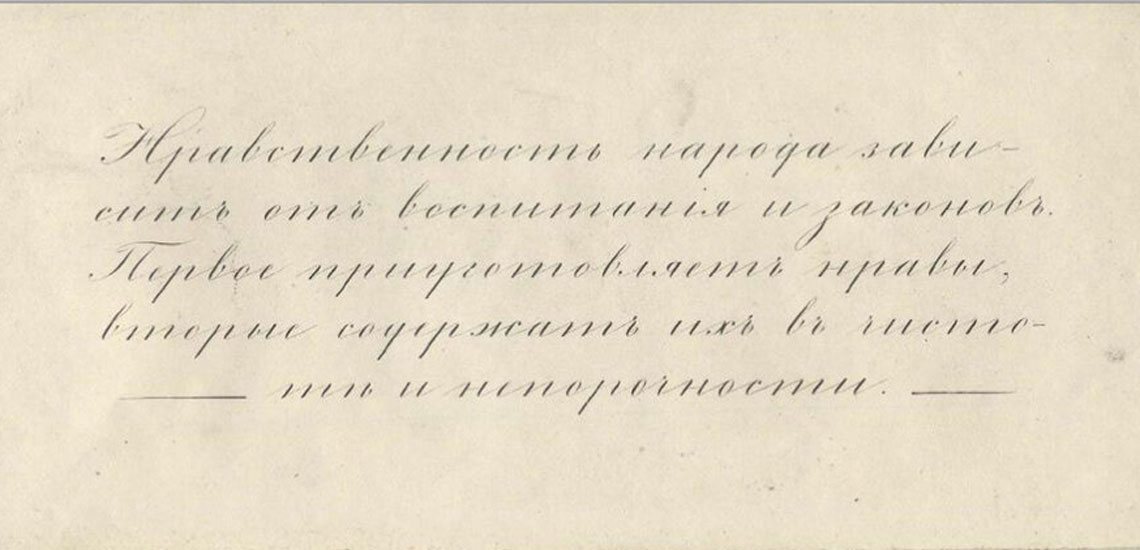 Нравственность народа зави-
ситъ отъ воспитанія и законовъ.
Первое приуготовляетъ нравы,
вторые содержатъ ихъ въ чисто-
тѣ и непорочности.